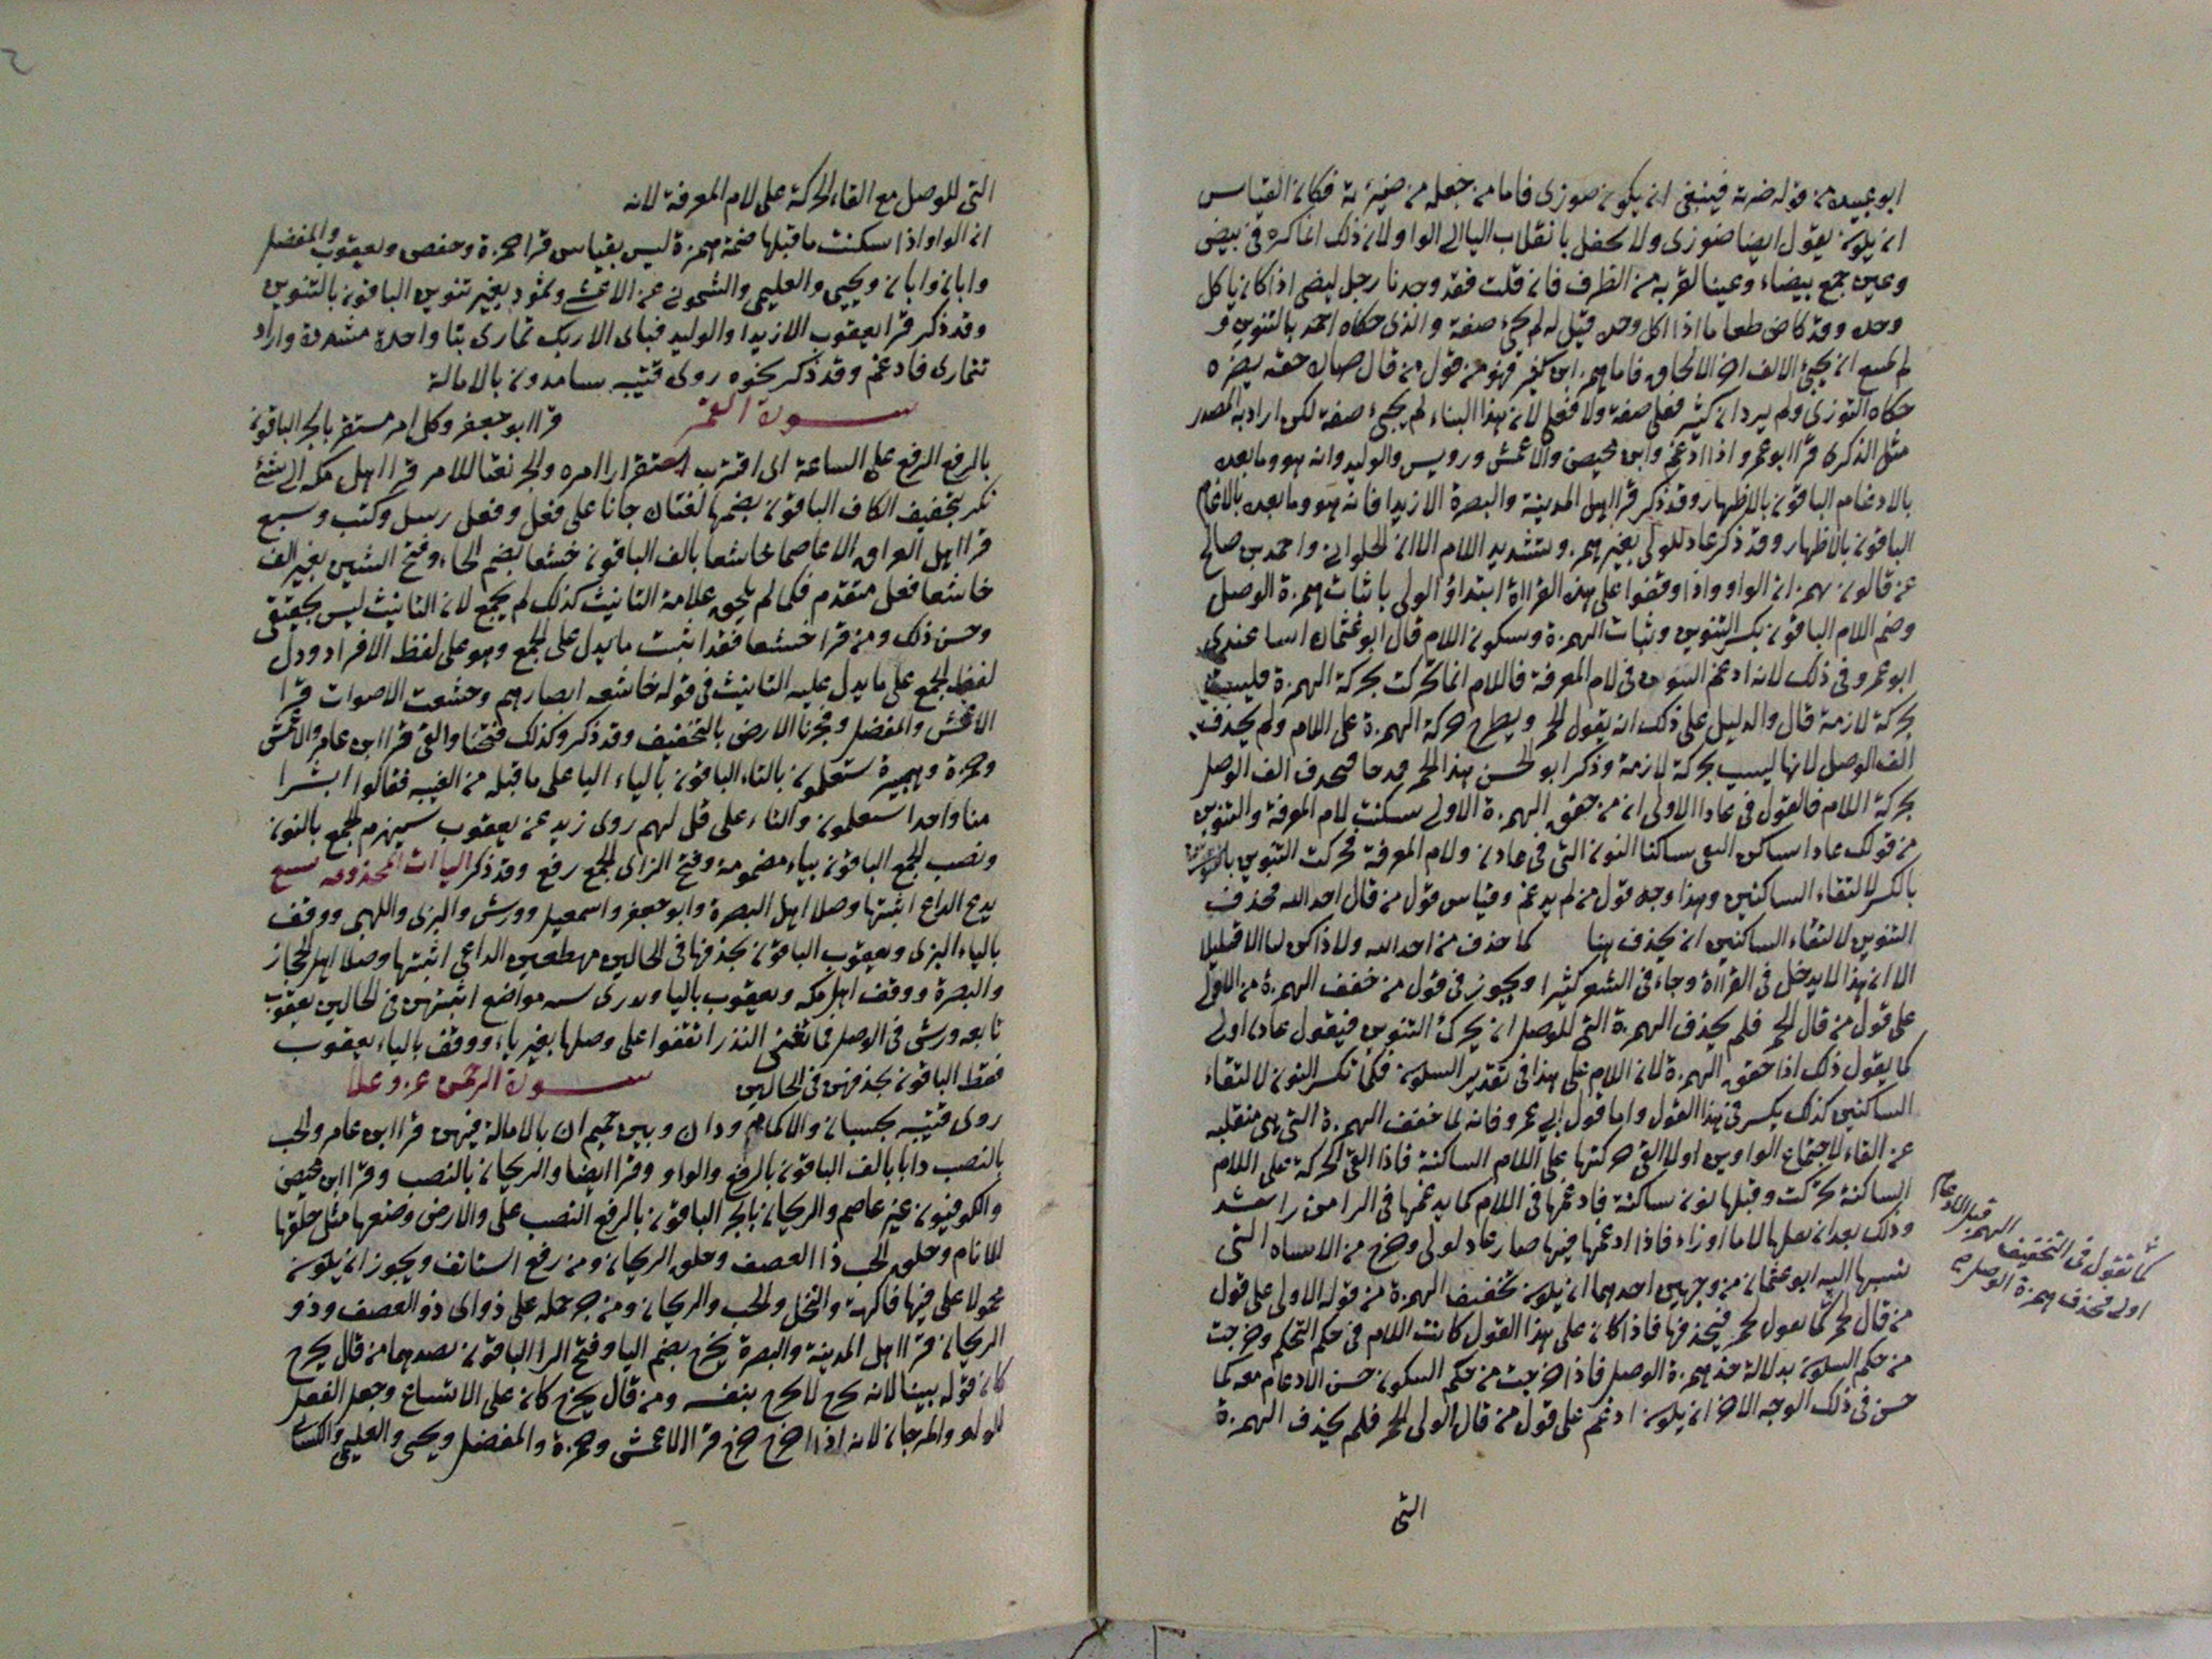 ابو عبيده من قوله ضزته فينبغى ان يكون ضوزى فاما من جعله من ضيزته فكان القياس
ان يكون يقول ايضا ضوزى ولا يحفل بانقلاب اليا الى الواو لان ذلك انما كره فى بيض
وعين جمع بيضاء وعينا لقربه من الطرف فان قلت فقد وجدنا رجل ليضى اذا كان ياكل
وحده وقد كاض طعاما اذا اكل وحده قيل له لم يجئ صفة والذى حكاه احمد بالتنوين و
لم يمتنع ان يجئ الالف اخر الالحاق فاما همز ابن كثير فهو من قول من قال ضازه حقه يضزه
حكاه التوزى ولم يرد ابن كثير فعلى صفة ولا فعلى لان هذا البناء لم يجئ صفة لكن اراد به المصدر
مثل الذكرى قرا ابو عمرو اذا ادغم وابن محيصن والاعمش ورويس والوليد وانه هو وما بعده
بالادغام الباقون بالاظهار وقد ذكر قرا اهل المدينة والبصرة الا زيدا فانه هو وما بعده بالادغام
الباقون بالاظهار وقد ذكر عاد لولى بغير همز وبتشديد اللام الا ان الحلوانى واحمد بن صالح
عن قالون همز ان الواو واذا وقفوا على هذه القراءة ابتداؤ الولى باثبات همزة الوصل
وضم اللام الباقون بكسر التنوين وثبات الهمزة وسكون اللام قال ابو عثمان اسا عندى
ابو عمرو فى ذلك لانه ادغم التنوين فى لام المعرفة فاللام انما تحركت بحركة الهمزة فليست
بحركة لازمة قال والدليل على ذلك انه يقول الحمر ويطرح حركة الهمزة على اللام ولم يحذف
الف الوصل لانها ليست بحركة لازمة وذكر ابو الحسن هذا لحمر قد جا فحذف الف الوصل
بحركة اللام فالقول فى عادا الاولى ان من حقق الهمزة الاولى سكنت لام المعرفة والتنوين
من قولك عادا ساكن التقى ساكنا النون التى فى عادن ولام المعرفة فحركت التنوين بالكسر
بالكسر لالتقاء الساكنين وهذا وجه قول من لم يدغم وقياس قول من قال احد الله فحذف
التنوين لالتقاء الساكنين ان يحذف هنا كما حذف من احد الله ولا ذاكر الله الا قليلا
الا ان هذا لا يدخل فى القراءة وجاء فى الشعر كثيرا ويجوز فى قول من خفف الهمزة من الاولى
على قول من قال الحمر فلم يحذف الهمزة التى للوصل ان يحرك التنوين فيقول عادن اولى
كما يقول ذلك اذا حقق الهمزة لان اللام على هذا فى تقدير السكون فكما تكسر النون لالتقاء
الساكنين كذلك يكسر فى هذا القول واما قول ابى عمرو فانه لما خفف الهمزة التى هى منقلبه
عن الفاء لاجتماع الواوين اولا القى حركتها على اللام الساكنة فاذا القى الحركة على اللام
الساكنة تحركت وقبلها نون ساكنة فادغمها فى اللام كما يدغمها فى الرا من راشد
وذلك بعد ان يقلبها لاما او راء فاذا ادغمها فيها صار عاد لولى وخرج من الاساه التى
نسبها اليه ابو عثمان من وجهين احدهما ان يكون تخفيف الهمزة من قوله الاولى على قول
من قال لحمر كما يقول لحمر فيحذفها فاذا كان على هذا القول كانت اللام فى حكم التحكم وخرجت
من حكم السكون بدلالة حذف همزة الوصل فاذا خرجت من حكم السكون حسن الادغام معه كما
حسن فى ذلك الوجه الاخر ان يكون ادغم على قول من قال الولى الحمر فلم يحذف الهمزة
كما تقول فى التخفيف الهمز قبل الادغام
اولى فحذف همزة الوصل
التى
التى للموصل مع القاء الحركة على لام المعرفة لانه
ان الواو اذا سكنت ما قبلها ضمة همزة ليس بقياس قرا حمزة وحفص ويعقوب والمفضل
وابان وابان ويحيى والعليمى والشمونى عن الاعشى وثمود بغير تنوين الباقون بالتنوين
وقد ذكر قرا يعقوب الا زيدا والوليد فباى الا ربك تمارى بتا واحدة مشددة واراد
تتمارى فادغم وقد ذكر نحوه روى قتيبه سامدون بالامالة
سورة القمر قرا ابو جعفر وكل امر مستقر بالجر الباقون
بالرفع الرفع على الساعة اى اقترب استقرارا مره والجر نعتا للامر قرا اهل مكه الى شئ
نكر بتخفيف الكاف الباقون بضمها لغتان جانا على فعل وفعل رسل وكتب وسبع
قرا اهل العراق الا عاصما خاشعا بالف الباقون خشعا بضم الخاء وفتح الشين بغير الف
خاشعا فعل متقدم فكما لم يلحق علامة التانيث كذلك لم يجمع لان التانيث ليس بحقيقى
وحسن ذلك ومن قرا خشعا فقد اثبت ما يدل على الجمع وهو على لفظ الافراد ودل
لفظ الجمع على ما يدل عليه التانيث فى قوله خاشعه ابصارهم وخشعت الاصوات قرا
الاعمش والمفضل وفجرنا الارض بالتخفيف وقد ذكر وكذلك فتحنا والقى قرا ابن عامر والاعمش
وحمزة وهبيرة ستعلمون بالتاء الباقون بالياء اليا على ما قبله من الغيبه فقالوا ابشرا
منا واحدا ستعلمون والتاء على قل لهم روى زيد عن يعقوب سيهزم الجمع بالنون
ونصب الجمع الباقون بياء مضمومة وفتح الزاى الجمع رفع وقد ذكر الياات المحذوفه سبع
يدع الداع اثبتها وصلا اهل البصرة وابو جعفر واسمعيل وورش والبزى واللهبى ووقف
بالياء البزى ويعقوب الباقون بحذفها فى الحالين مهطعين الداعى اثبتها وصلا اهل الحجاز
والبصرة ووقف اهل مكه ويعقوب باليا ونذرى سته مواضع اثبتهن فى الحالين يعقوب
تابعه ورش فى الوصل فما تغنى النذر اتفقوا على وصلها بغير ياء ووقف بالياء يعقوب
فقط الباقون بحذفهن فى الحالين سورة الرحمن عز وعلا
روى قتيبه بحسبان والاكمام ودان وبين حميم ان بالامالة فيهن قرا ابن عامر والحب
بالنصب ذابا بالف الباقون بالرفع والواو وقرا ايضا والريحان بالنصب وقرا ابن محيصن
والكوفيون غير عاصم والريحان بالجر الباقون بالرفع النصب على والارض وضعها مثل خلقها
للانام وخلق الحب ذا العصف وخلق الريحان ومن رفع استانف ويجوز ان يكون
محمولا على فيها فاكهة والنخل والحب والريحان ومن جر حمله على ذواى ذو العصف وذو
الريحان قرا اهل المدينة والبصرة يخرج بضم اليا وفتح الرا الباقون بضدهما من قال يخرج
كان قوله بينا لانه يخرج لا يخرج بنفسه ومن قال يخرج كان على الاتساع وجعل الفعل
للولو والمرجان لانه اذا اخرج خرج قرا الاعمش وحمزة والمفضل ويحيى والعليمى والكسائى